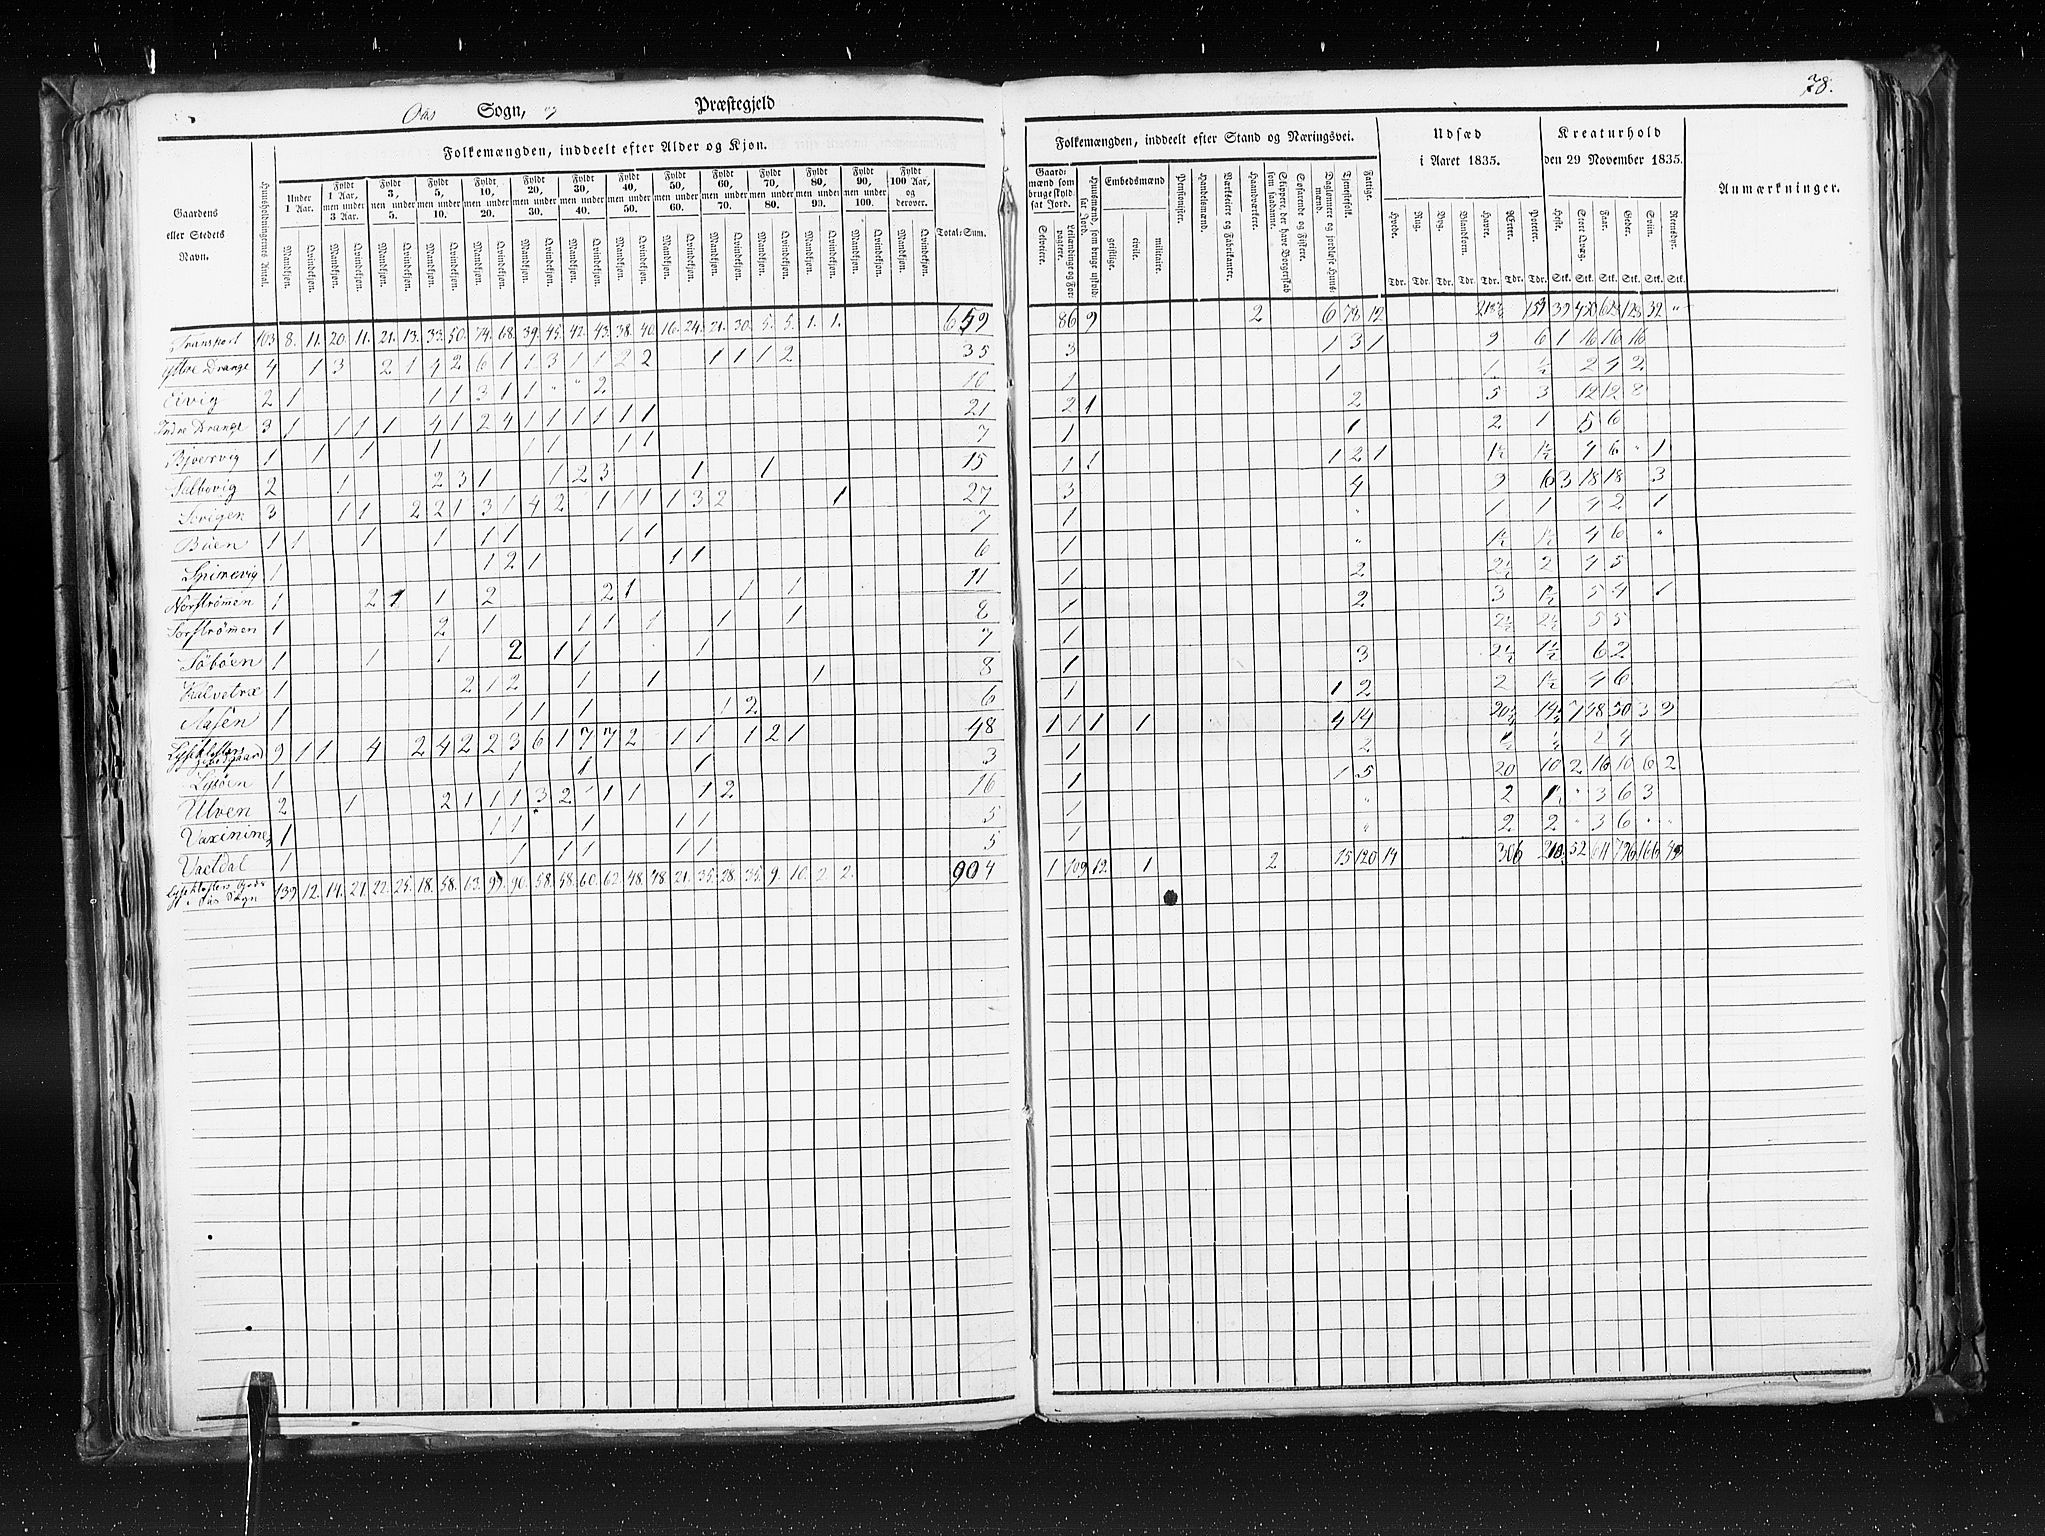 78.
Oas Sogn, Præstegjeld
Folkemængden, inddeelt efter Alder og Kjøn.
Gaardens eller Stedets Navn.
Huusholdningernes Antal.
Under 1 Aar.
Fyldt 1 Aar, men under 3 Aar.
Fyldt 3, men under 5.
Fyldt 5, men under 10.
Fyldt 10, men under 20.
Fyldt 20, men under 30.
Fyldt 30, men under 40.
Fyldt 40, men under 50.
Fyldt 50, men under 60.
Fyldt 60, men under 70.
Fyldt 70, men under 80.
Fyldt 80, men under 90.
Fyldt 90, men under 100.
Fyldt 100 Aar, og derover.
Mandkjøn. Qvindekjøn.
Total-Sum.
Transport 103 8. 11. 20. 11. 21. 13. 33. 50. 74. 68. 39. 45. 42. 43. 38. 40. 16. 24. 21. 30. 5. 5. 1. 1. 659
Ytre Drange 4 1 3 2 1 4 2 6 1 1 3 1 1 2 2 1 1 1 2 35
Eivig 2 1 1 1 3 1 1 " " 2 10
Indre Drange 3 1 1 1 1 4 1 2 4 1 1 1 1 1 1 21
Bjørnvig 1 1 1 1 1 1 1 1 7
2 1 2 3 1 1 2 3 1 1 15
Sørvigen 3 1 1 2 2 1 3 1 4 2 1 1 1 1 3 2 1 27
Bøen 1 1 1 1 1 1 1 1 7
Spimevig 1 1 2 1 1 1 6
Norstrømen 1 2 1 1 2 2 1 1 1 11
Sørstrømen 1 2 1 1 1 1 1 1 8
Søbøen 1 1 1 2 1 1 1 7
Kalvetræ 1 2 1 2 1 1 1 8
Aasen 1 1 1 1 1 2 6
Lysekloster 9 1 1 4 2 4 2 2 3 6 1 7 7 2 1 1 1 2 1 48
Lysøen 1 1 1 1 3
Ulven 2 1 2 1 1 1 3 2 1 1 1 1 2 16
1 1 1 1 1 1 5
Vaetdal 1 1 1 1 1 1 5
Lyseklosters Gods i Oas Sogn 139 12. 14. 27. 22. 25. 18. 58. 904
Folkemængden, inddeelt efter Stand og Næringsvei.
Gaardmænd som bruge skyldsat Jord.
Selveiere.
Leilændinge og Forpagtere.
Huusmænd, som bruge uskyldsat Jord.
Embedsmænd
geistlige.
civile.
militaire.
Pensionister.
Handelsmænd.
Værkseiere og Fabrikanter.
Haandværkere.
Skippere, der have Borgerskab som saadanne.
Søfarende og Fiskere.
Daglønnere og jordløse Huusmænd.
Tjenestefolk.
Fattige.
Udsæd i Aaret 1835.
Hvede. Rug. Byg. Blandkorn. Havre. Ærter. Poteter.
Tdr. Tdr. Tdr. Tdr. Tdr. Tdr. Tdr.
Kreaturhold den 29 November 1835.
Heste. Stort Qvæg. Faar. Geder. Sviin. Reensdyr.
Stk. Stk. Stk. Stk. Stk. Stk.
Anmærkninger.
86 9 2 6 78 12
3 1 3 1 9 6 1 16 16 16
1 1 1 ½ 2 4 2
2 1 2 5 3 12 12 8
1 1 2 1 5 6
1 1 1 2 1 1½ 1½ 4 6 " 1
3 4 9 6 3 18 18 3
1 " 1 1 4 2 1
1 " 1½ 1½ 4 6 "
1 2 2½ 2 4 5
1 2 3 1½ 5 4 1
1 2½ 2½ 5 5
1 3 2½ 1½ 6 2
1 1 2 2 1½ 4 6
1 1 1 1 4 14 7 48 50 3 3
1 2 ½ 2 4
1 1 5 20 10 2 16 10 6 2
1 " 2 " 3 6 3
1 " 2 2 " 3 6 " "
1 109 12. 1 2 15 120 14 306 210 52